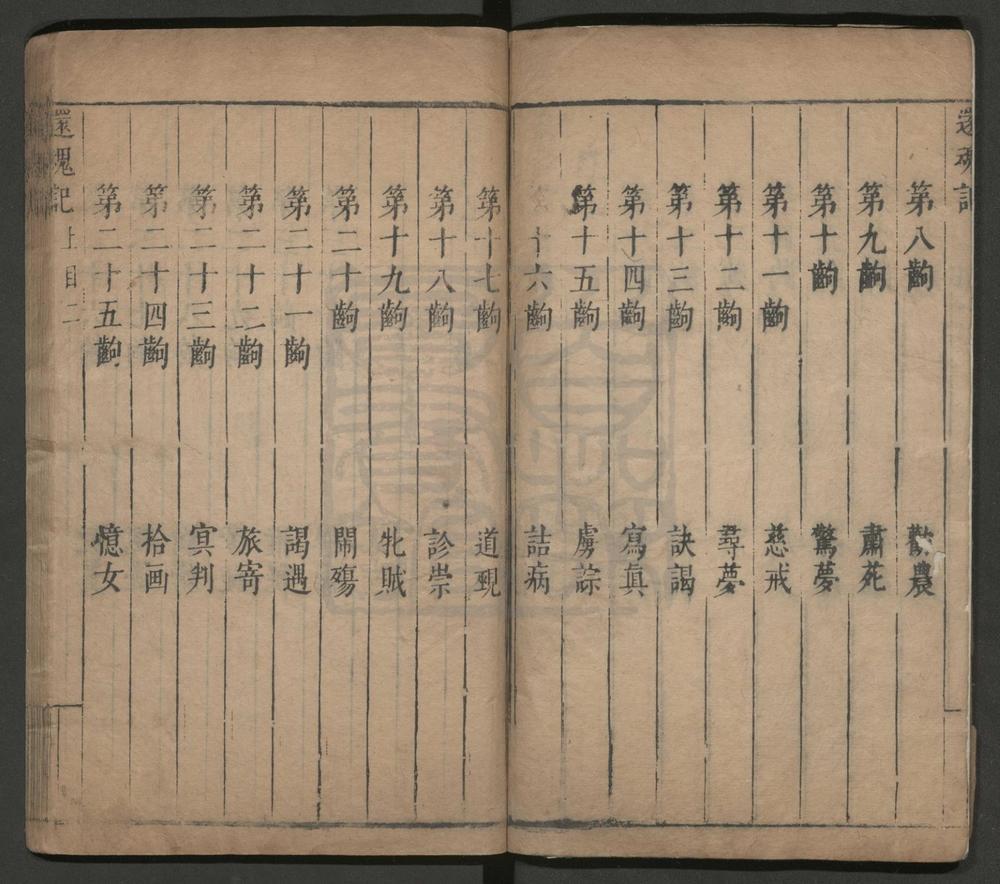 還魂記
第八齣 勸農
第九齣 肅苑
第十齣 驚夢
第十一齣 慈戒
第十二齣 尋夢
第十三齣 訣謁
第十四齣 寫眞
第十五齣 虜諜
十六齣 詰病
第十七齣 道覡
第十八齣 診祟
第十九齣 牝賊
第二十齣 鬧殤
第二十一齣 謁遇
第二十二齣 旅寄
第二十三齣 冥判
第二十四齣 拾画
第二十五齣 憶女
還魂記 上目二